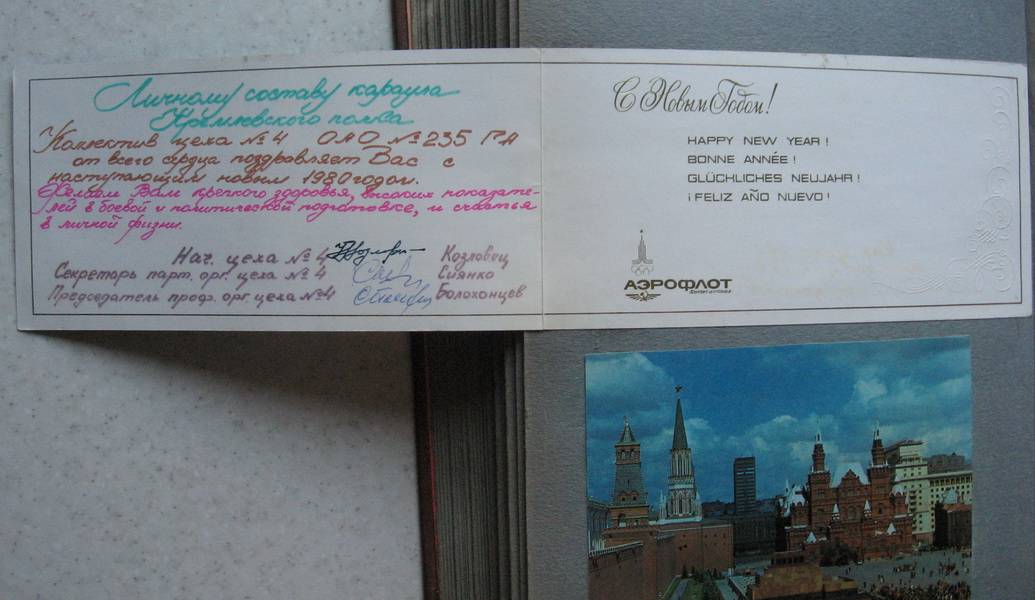 Личному составу караула
Кремлевского полка
Коллектив цеха №4 ОАО №235 ГА
от всего сердца поздравляет Вас с
наступающим новым 1980 годом.
Желаем Вам крепкого здоровья, высоких показате-
лей в боевой и политической подготовке, и счастья
в личной жизни.
Нач. цеха №4 Козловец
Секретарь парт. орг. цеха №4 Сиянко
Председатель проф. орг. цеха №4 Болохонцев
С Новым Годом!
HAPPY NEW YEAR!
BONNE ANNÉE!
GLÜCKLICHES NEUJAHR!
¡FELIZ AÑO NUEVO!
АЭРОФЛОТ